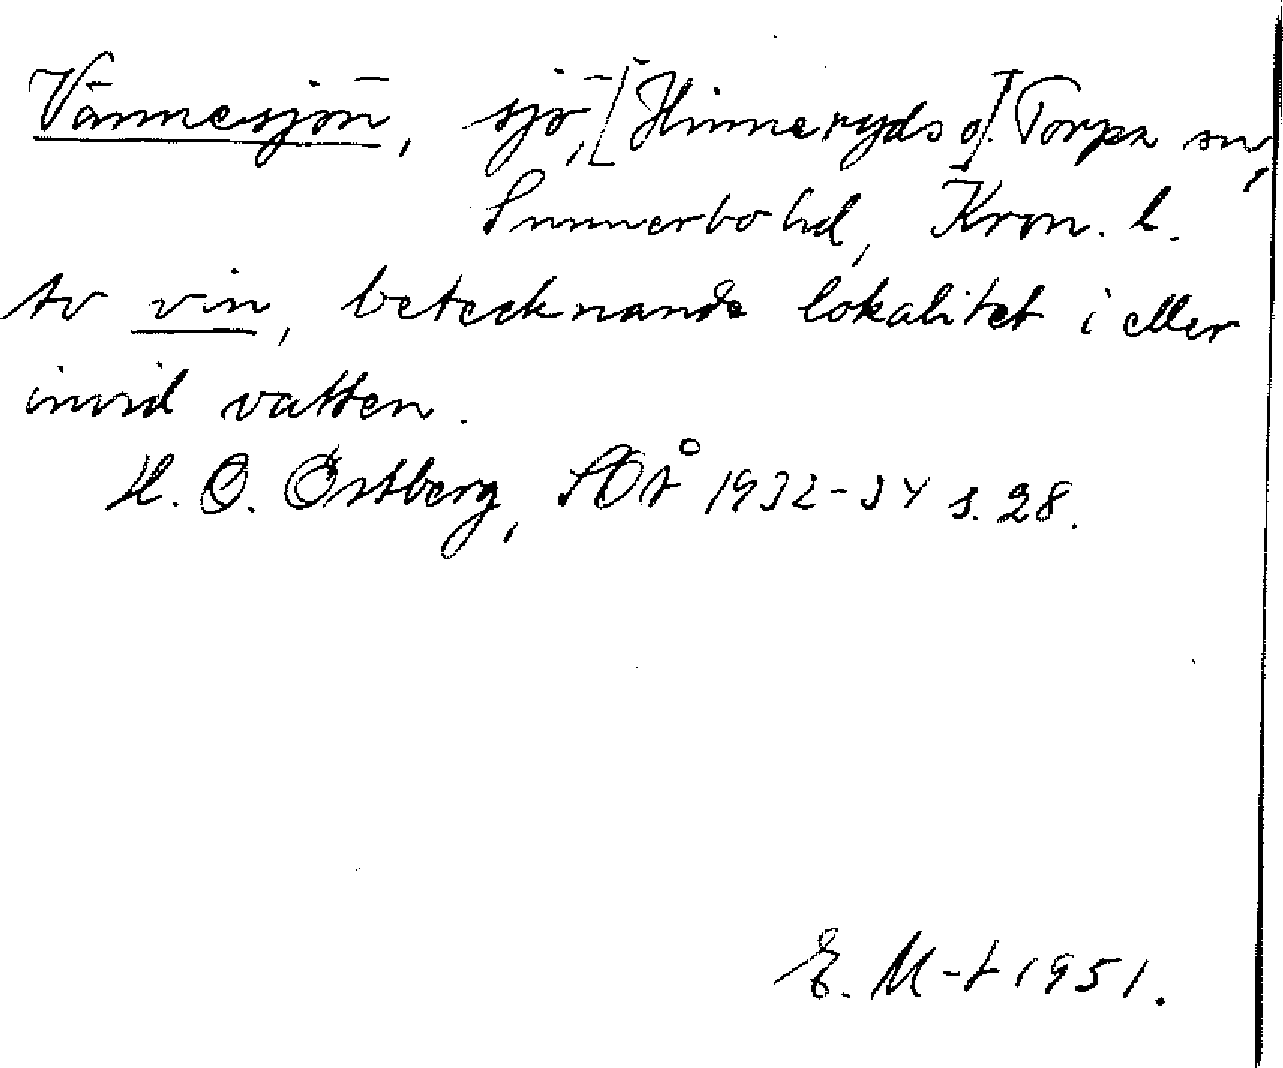 Vännesjön, sjö, [Hinneryds o]. Torpa sn,
Sunnerbo hd, Kron. l.
Av vin, betecknande lokalitet i eller
invid vatten.
H. O. Östberg, SOÅ 1932-34 s. 28.
E. M-t 1951.